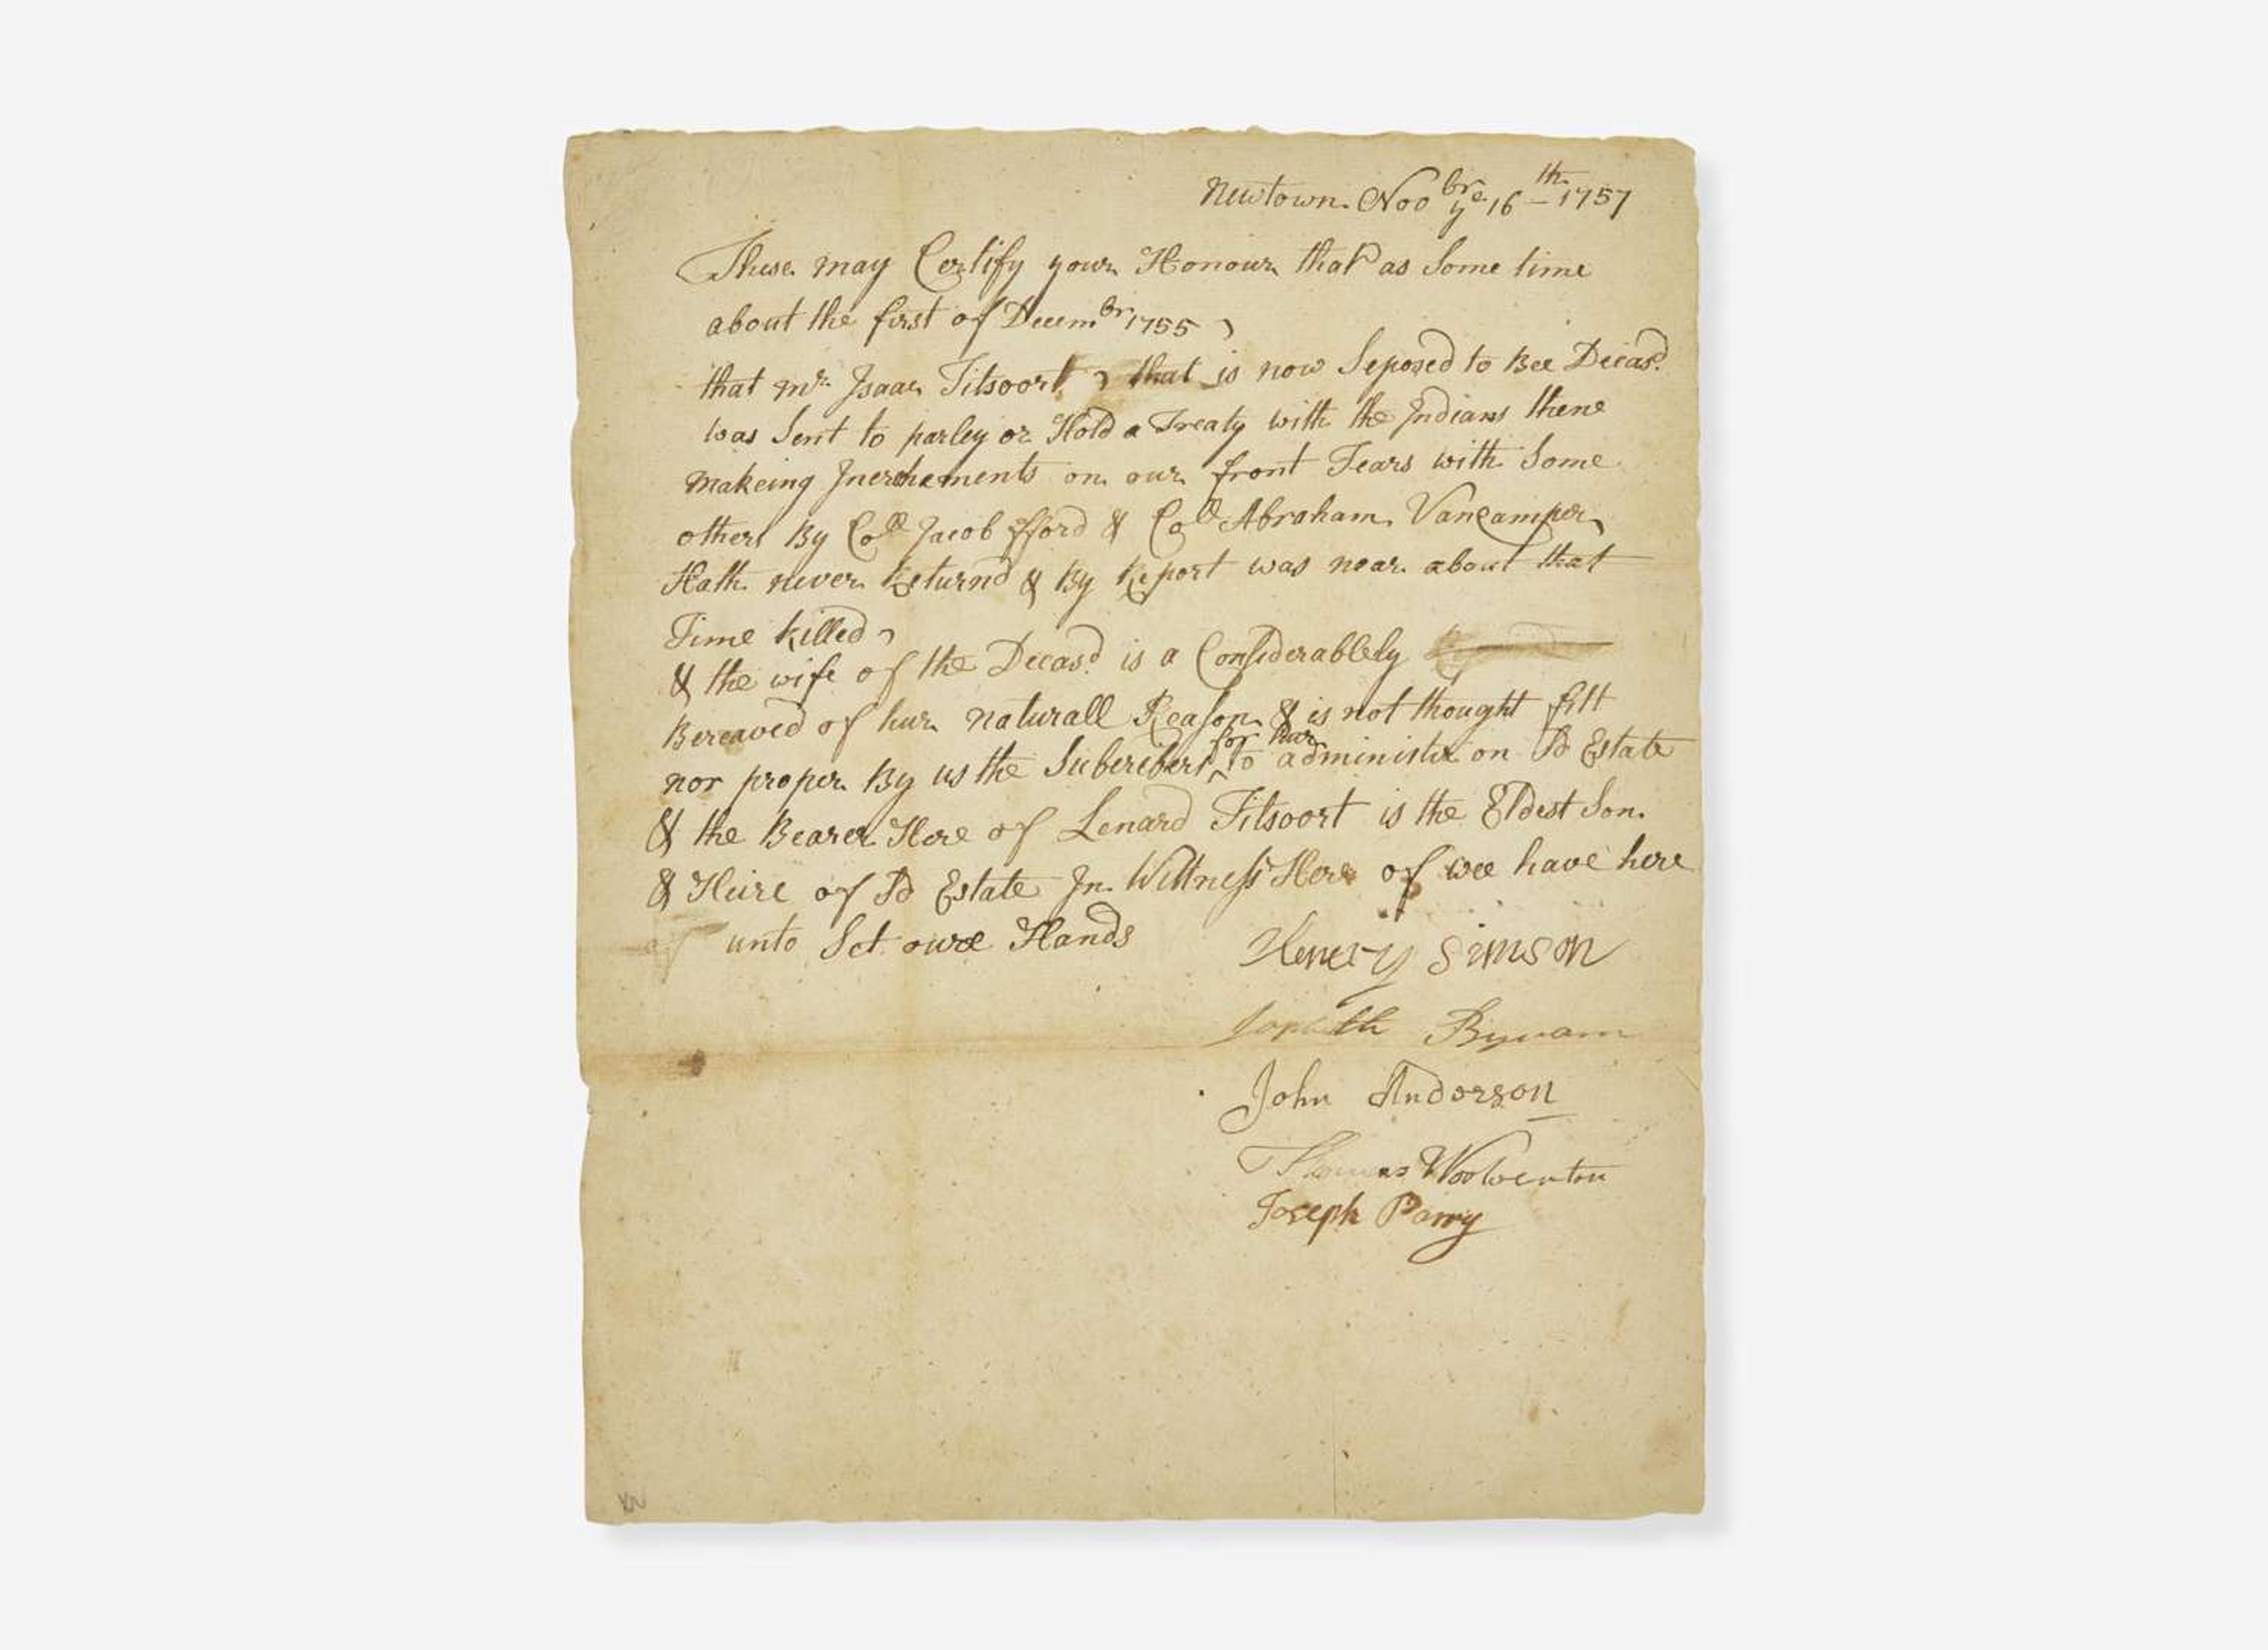 Newtown Novbr ye 16th 1757
These may Certify your Honour that as Some time
about the first of Decembr 1755
that mr Isaac Titsoort that is now Seposed to Bee Decasd
was Sent to parley or Hold a Treaty with the Indians thene
makeing Incrohements on our front Tears with Some
others By Coll Jacob fford & Coll Abraham Vancamper
Hath never Returnd & By Report was near about that
Time killed
& the wife of the Decasd is a Considerablely
Bereaved of hur naturall Reason & is not thought fitt
nor proper By us the Subcribers for hur to administer on Sd Estate
& the Bearer Here of Lenard Titsoort is the Eldest Son
& Heire of Sd Estate In Wittness Here of wee have here
unto Set owre Hands
Henery Simson
John Anderson
Thomas Woolverton
Joseph Parry